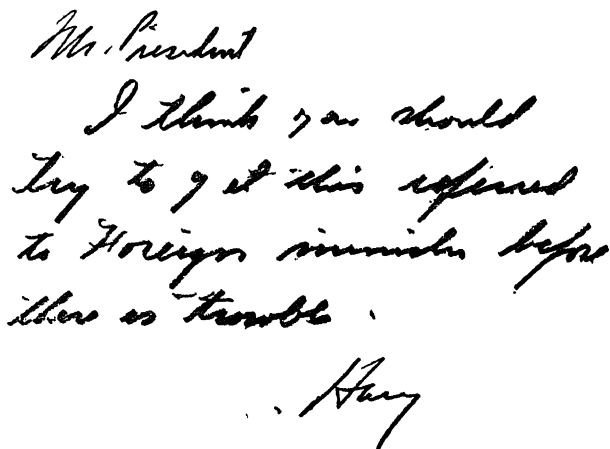 Mr. President
I think you should
try to get this referred
to Foreign ministers before
there is trouble.
Harry